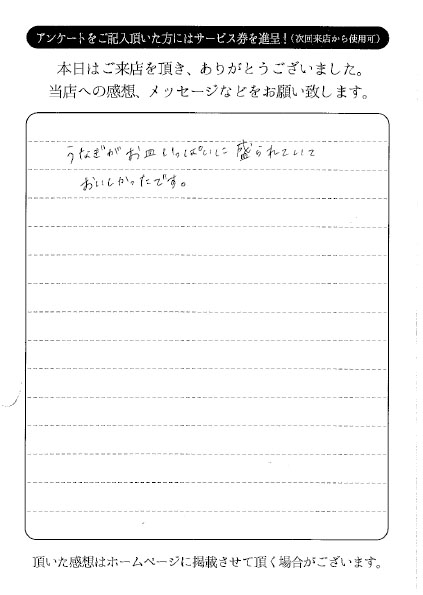 アンケートをご記入頂いた方にはサービス券を進呈！（次回来店から使用可）
本日はご来店を頂き、ありがとうございました。
当店への感想、メッセージなどをお願い致します。
うなぎがお皿いっぱいに盛られていて
おいしかったです。
頂いた感想はホームページに掲載させて頂く場合がございます。